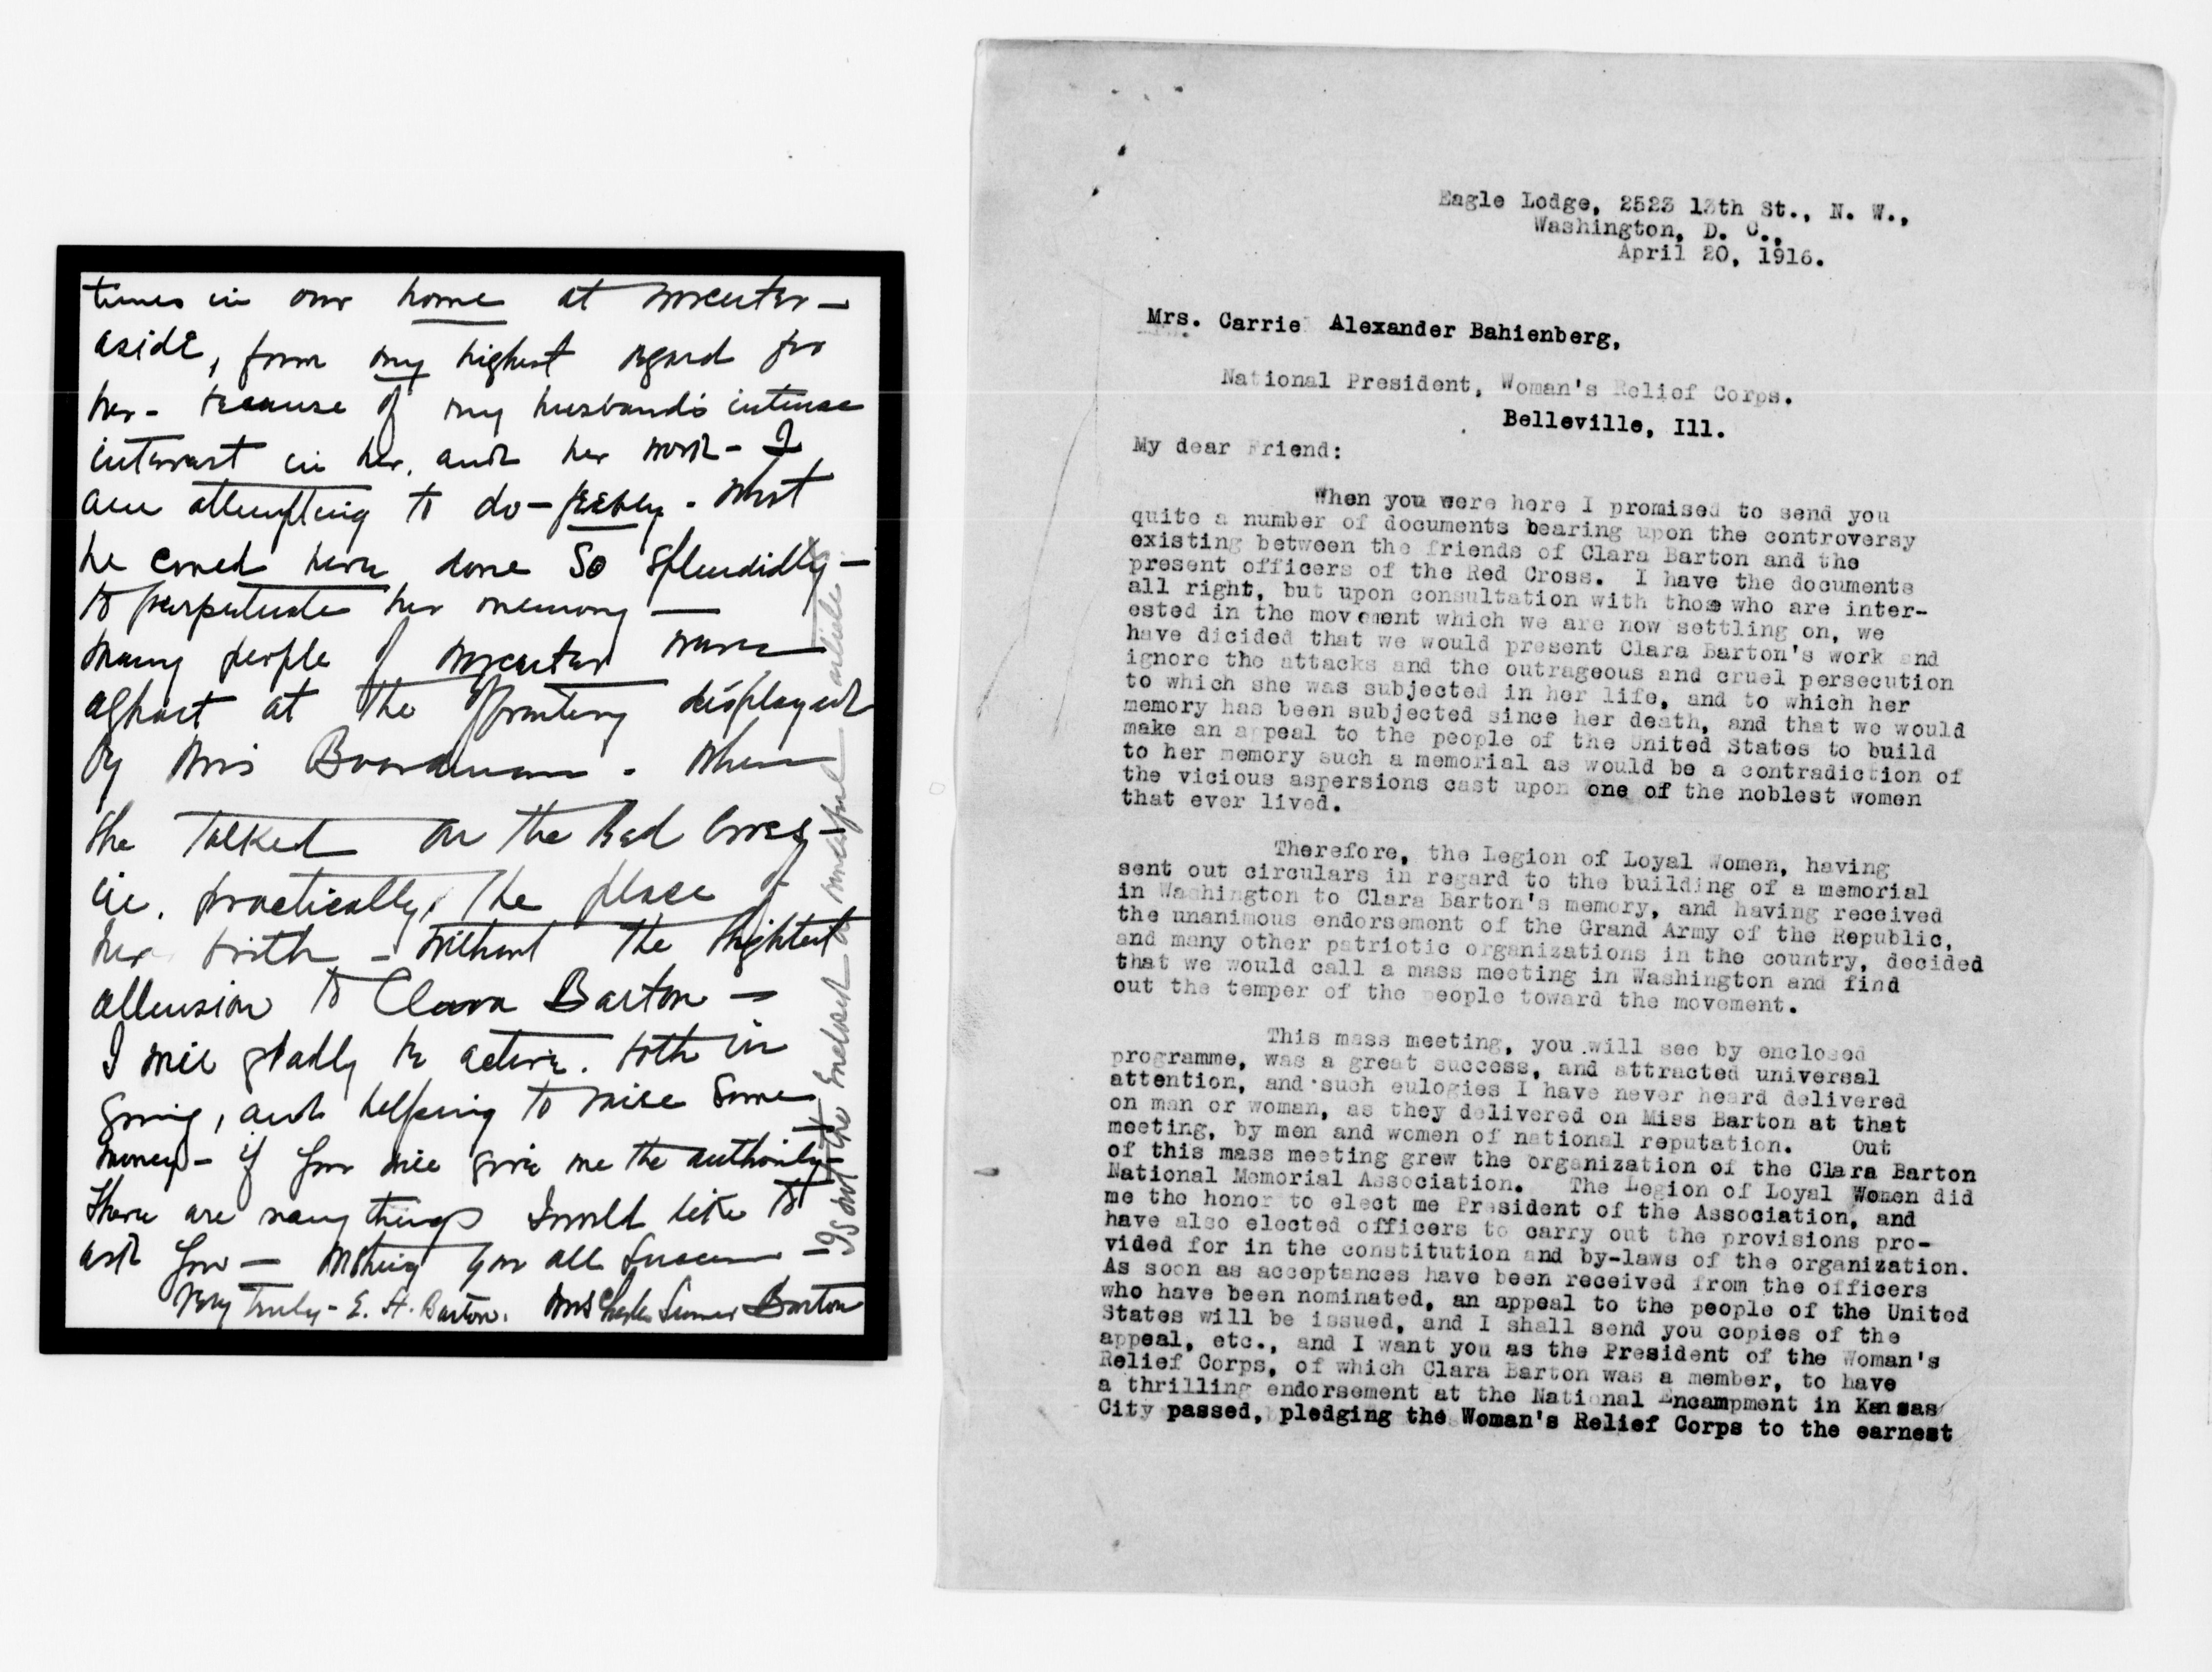 times in our home at Worcester —
aside, from my highest regard for
her - because of my husband's intense
interest in her, and her work - I
am attempting to do - feebly - what
he could have done so splendidly —
to perpetuate her memory —
Many people of Worcester were
aghast at the effrontery displayed
by Miss Boardman - when
she talked on the Red Cross —
in, practically, the place of
her birth — without the slightest
allusion to Clara Barton —
I will gladly be active, both in
giving, and helping to raise some
money - if you will give me the authority -
There are many things I would like to
ask you — Wishing you all success —
Very truly - E. H. Barton. Mrs Charles Sumner Barton
Is not the enclosed a
article
Eagle Lodge, 2523 13th St., N. W.,
Washington, D. C.,
April 20, 1916.
Mrs. Carrie Alexander Bahienberg,
National President, Woman's Relief Corps.
Belleville, Ill.
My dear Friend:
When you were here I promised to send you
quite a number of documents bearing upon the controversy
existing between the friends of Clara Barton and the
present officers of the Red Cross. I have the documents
all right, but upon consultation with those who are inter-
ested in the movement which we are now settling on, we
have dicided that we would present Clara Barton's work and
ignore the attacks and the outrageous and cruel persecution
to which she was subjected in her life, and to which her
memory has been subjected since her death, and that we would
make an appeal to the people of the United States to build
to her memory such a memorial as would be a contradiction of
the vicious aspersions cast upon one of the noblest women
that ever lived.
Therefore, the Legion of Loyal Women, having
sent out circulars in regard to the building of a memorial
in Washington to Clara Barton's memory, and having received
the unanimous endorsement of the Grand Army of the Republic,
and many other patriotic organizations in the country, decided
that we would call a mass meeting in Washington and find
out the temper of the people toward the movement.
This mass meeting, you will see by enclosed
programme, was a great success, and attracted universal
attention, and such eulogies I have never heard delivered
on man or woman, as they delivered on Miss Barton at that
meeting, by men and women of national reputation. Out
of this mass meeting grew the organization of the Clara Barton
National Memorial Association. The Legion of Loyal Women did
me the honor to elect me President of the Association, and
have also elected officers to carry out the provisions pro-
vided for in the constitution and by-laws of the organization.
As soon as acceptances have been received from the officers
who have been nominated, an appeal to the people of the United
States will be issued, and I shall send you copies of the
appeal, etc., and I want you as the President of the Woman's
Relief Corps, of which Clara Barton was a member, to have
a thrilling endorsement at the National Encampment in Kansas
City passed, pledging the Woman's Relief Corps to the earnest